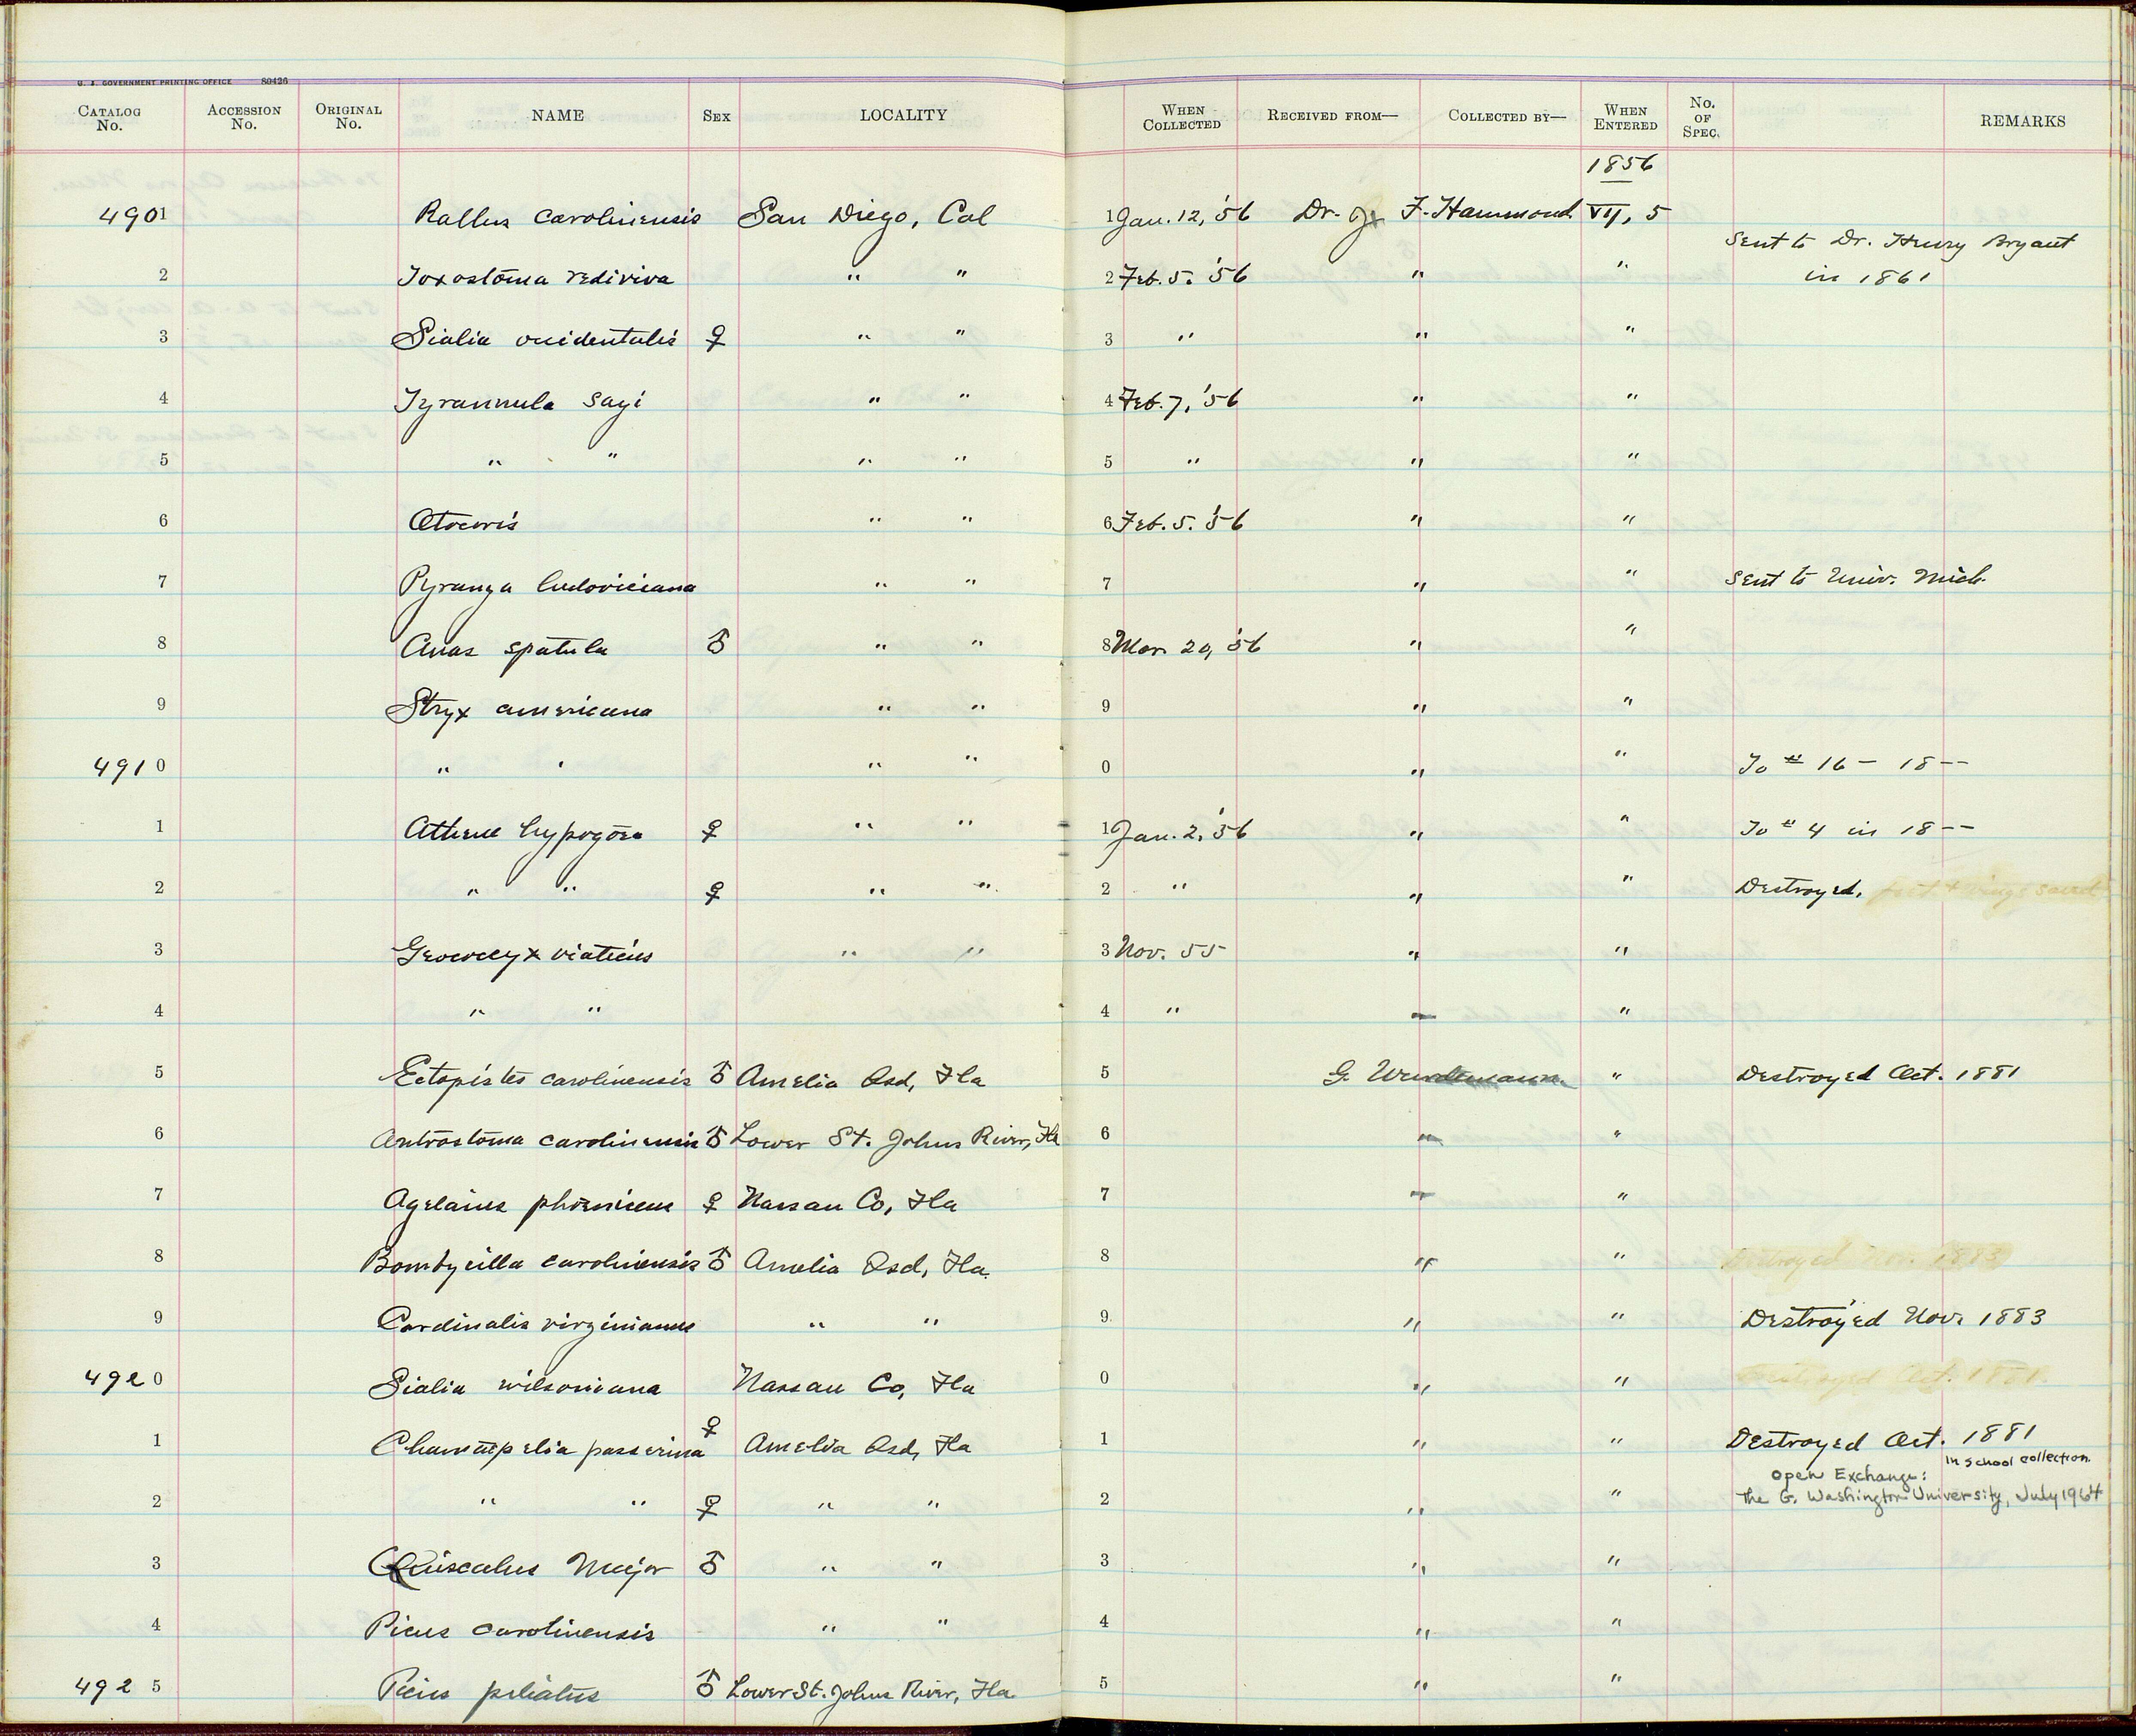 U. S. GOVERNMENT PRINTING OFFICE 80426
CATALOG No. ACCESSION No. ORIGINAL No. NAME SEX LOCALITY WHEN COLLECTED RECEIVED FROM— COLLECTED BY— WHEN ENTERED No. OF SPEC. REMARKS
1856
4901 Rallus carolinensis San Diego, Cal 1 Jan. 12, '56 Dr. J. F. Hammond VII, 5
Sent to Dr. Henry Bryant
2 Toxostoma rediviva " " 2 Feb. 5. '56 " " in 1861
3 Sialia occidentalis ♀ " " 3 " " "
4 Tyrannula sayi " " 4 Feb. 7, '56 " "
5 " " " " 5 " " "
6 Otocoris " " 6 Feb. 5. '56 " "
7 Pyranga ludoviciana " " 7 " " Sent to Univ. Mich.
8 Anas spatula ♂ " " 8 Mar 20, '56 " "
9 Stryx americana " " 9 " "
4910 " " " " 0 " " To # 16 - 18--
1 Athene hypogœa ♀ " " 1 Jan. 2, '56 " " To # 4 in 18--
2 " " ♀ " " 2 " " " Destroyed, feet & wings saved
3 Geococcyx viaticus " " 3 Nov. 55 " "
4 " " 4 " " "
5 Ectopistes carolinensis ♂ Amelia Isd, Fla 5 G. Wurdemann " Destroyed Oct. 1881
6 Antrostoma carolinensis ♂ Lower St. Johns River, Fla 6 " "
7 Agelaius phœniceus ♀ Nassau Co, Fla 7 " "
8 Bombycilla carolinensis ♂ Amelia Isd, Fla. 8 " " Destroyed Nov. 1883
9 Cardinalis virginianus " " 9 " " Destroyed Nov. 1883
4920 Sialia wilsoniana Nassau Co, Fla 0 " " Destroyed Oct. 1881.
1 Chamæpelia passerina ♀ Amelia Isd, Fla 1 " " Destroyed Oct. 1881
In school collection
Open Exchange:
2 " " ♀ " " 2 " " The G. Washington University, July 1964
3 Quiscalus major ♂ " " 3 " "
4 Picus carolinensis " " 4 " "
4925 Picus pileatus ♂ Lower St. Johns River, Fla. 5 " "